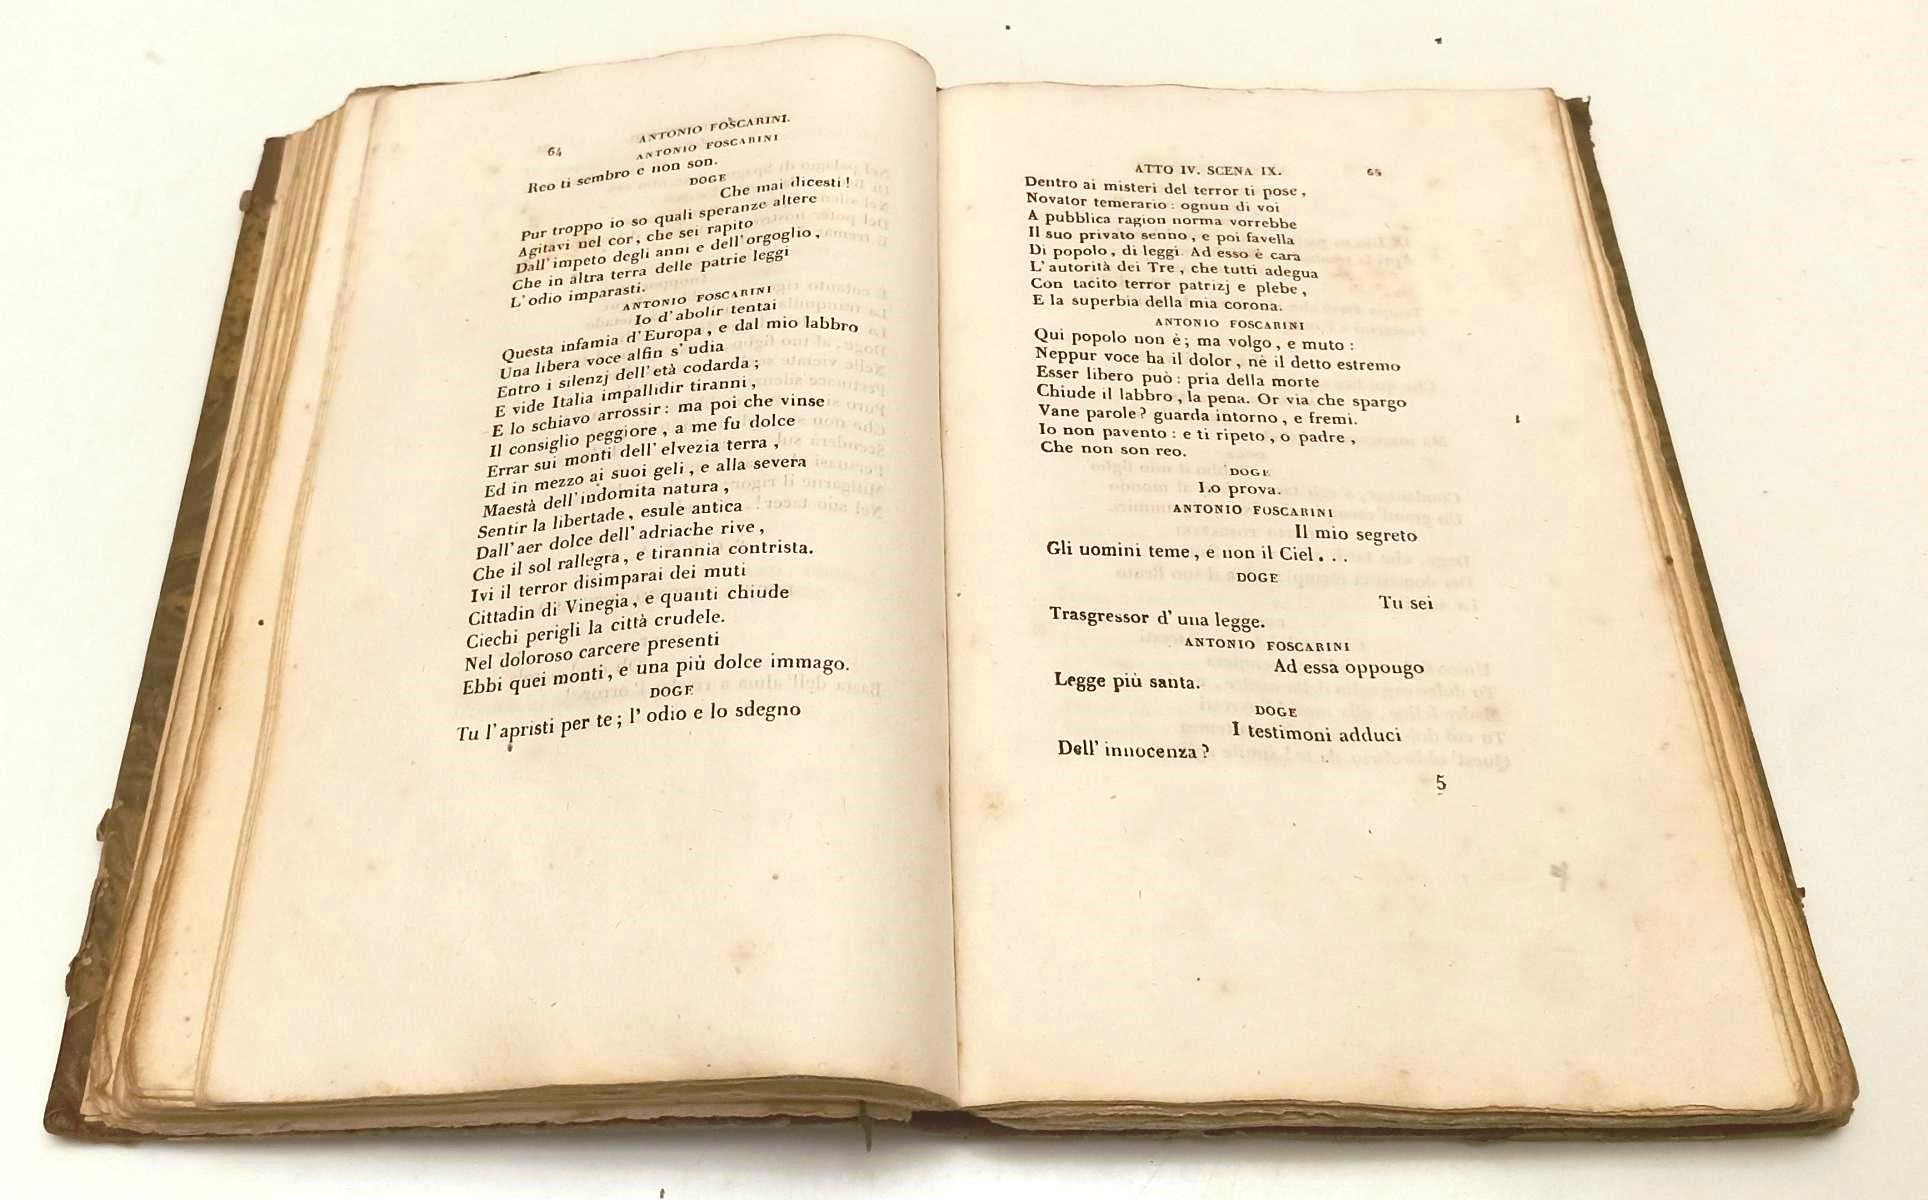 64
ANTONIO FOSCARINI.
ANTONIO FOSCARINI
Reo ti sembro e non son.
DOGE
Che mai dicesti!
Pur troppo io so quali speranze altere
Agitavi nel cor, che sei rapito
Dall'impeto degli anni e dell'orgoglio,
Che in altra terra delle patrie leggi
L'odio imparasti.
ANTONIO FOSCARINI
Io d'abolir tentai
Questa infamia d'Europa, e dal mio labbro
Una libera voce alfin s'udia
Entro i silenzj dell'età codarda;
E vide Italia impallidir tiranni,
E lo schiavo arrossir: ma poi che vinse
Il consiglio peggiore, a me fu dolce
Errar sui monti dell'elvezia terra,
Ed in mezzo ai suoi geli, e alla severa
Maestà dell'indomita natura,
Sentir la libertade, esule antica
Dall'aer dolce dell'adriache rive,
Che il sol rallegra, e tirannia contrista.
Ivi il terror disimparai dei muti
Cittadin di Vinegia, e quanti chiude
Ciechi perigli la città crudele.
Nel doloroso carcere presenti
Ebbi quei monti, e una più dolce immago.
DOGE
Tu l'apristi per te; l'odio e lo sdegno
ATTO IV. SCENA IX. 65
Dentro ai misteri del terror ti pose,
Novator temerario: ognun di voi
A pubblica ragion norma vorrebbe
Il suo privato senno, e poi favella
Di popolo, di leggi. Ad esso è cara
L'autorità dei Tre, che tutti adegua
Con tacito terror patrizj e plebe,
E la superbia della mia corona.
ANTONIO FOSCARINI
Qui popolo non è; ma volgo, e muto:
Neppur voce ha il dolor, nè il detto estremo
Esser libero può: pria della morte
Chiude il labbro, la pena. Or via che spargo
Vane parole? guarda intorno, e fremi.
Io non pavento: e ti ripeto, o padre,
Che non son reo.
DOGE
Lo prova.
ANTONIO FOSCARINI
Il mio segreto
Gli uomini teme, e non il Ciel...
DOGE
Tu sei
Trasgressor d'una legge.
ANTONIO FOSCARINI
Ad essa oppongo
Legge più santa.
DOGE
I testimoni adduci
Dell'innocenza?
5